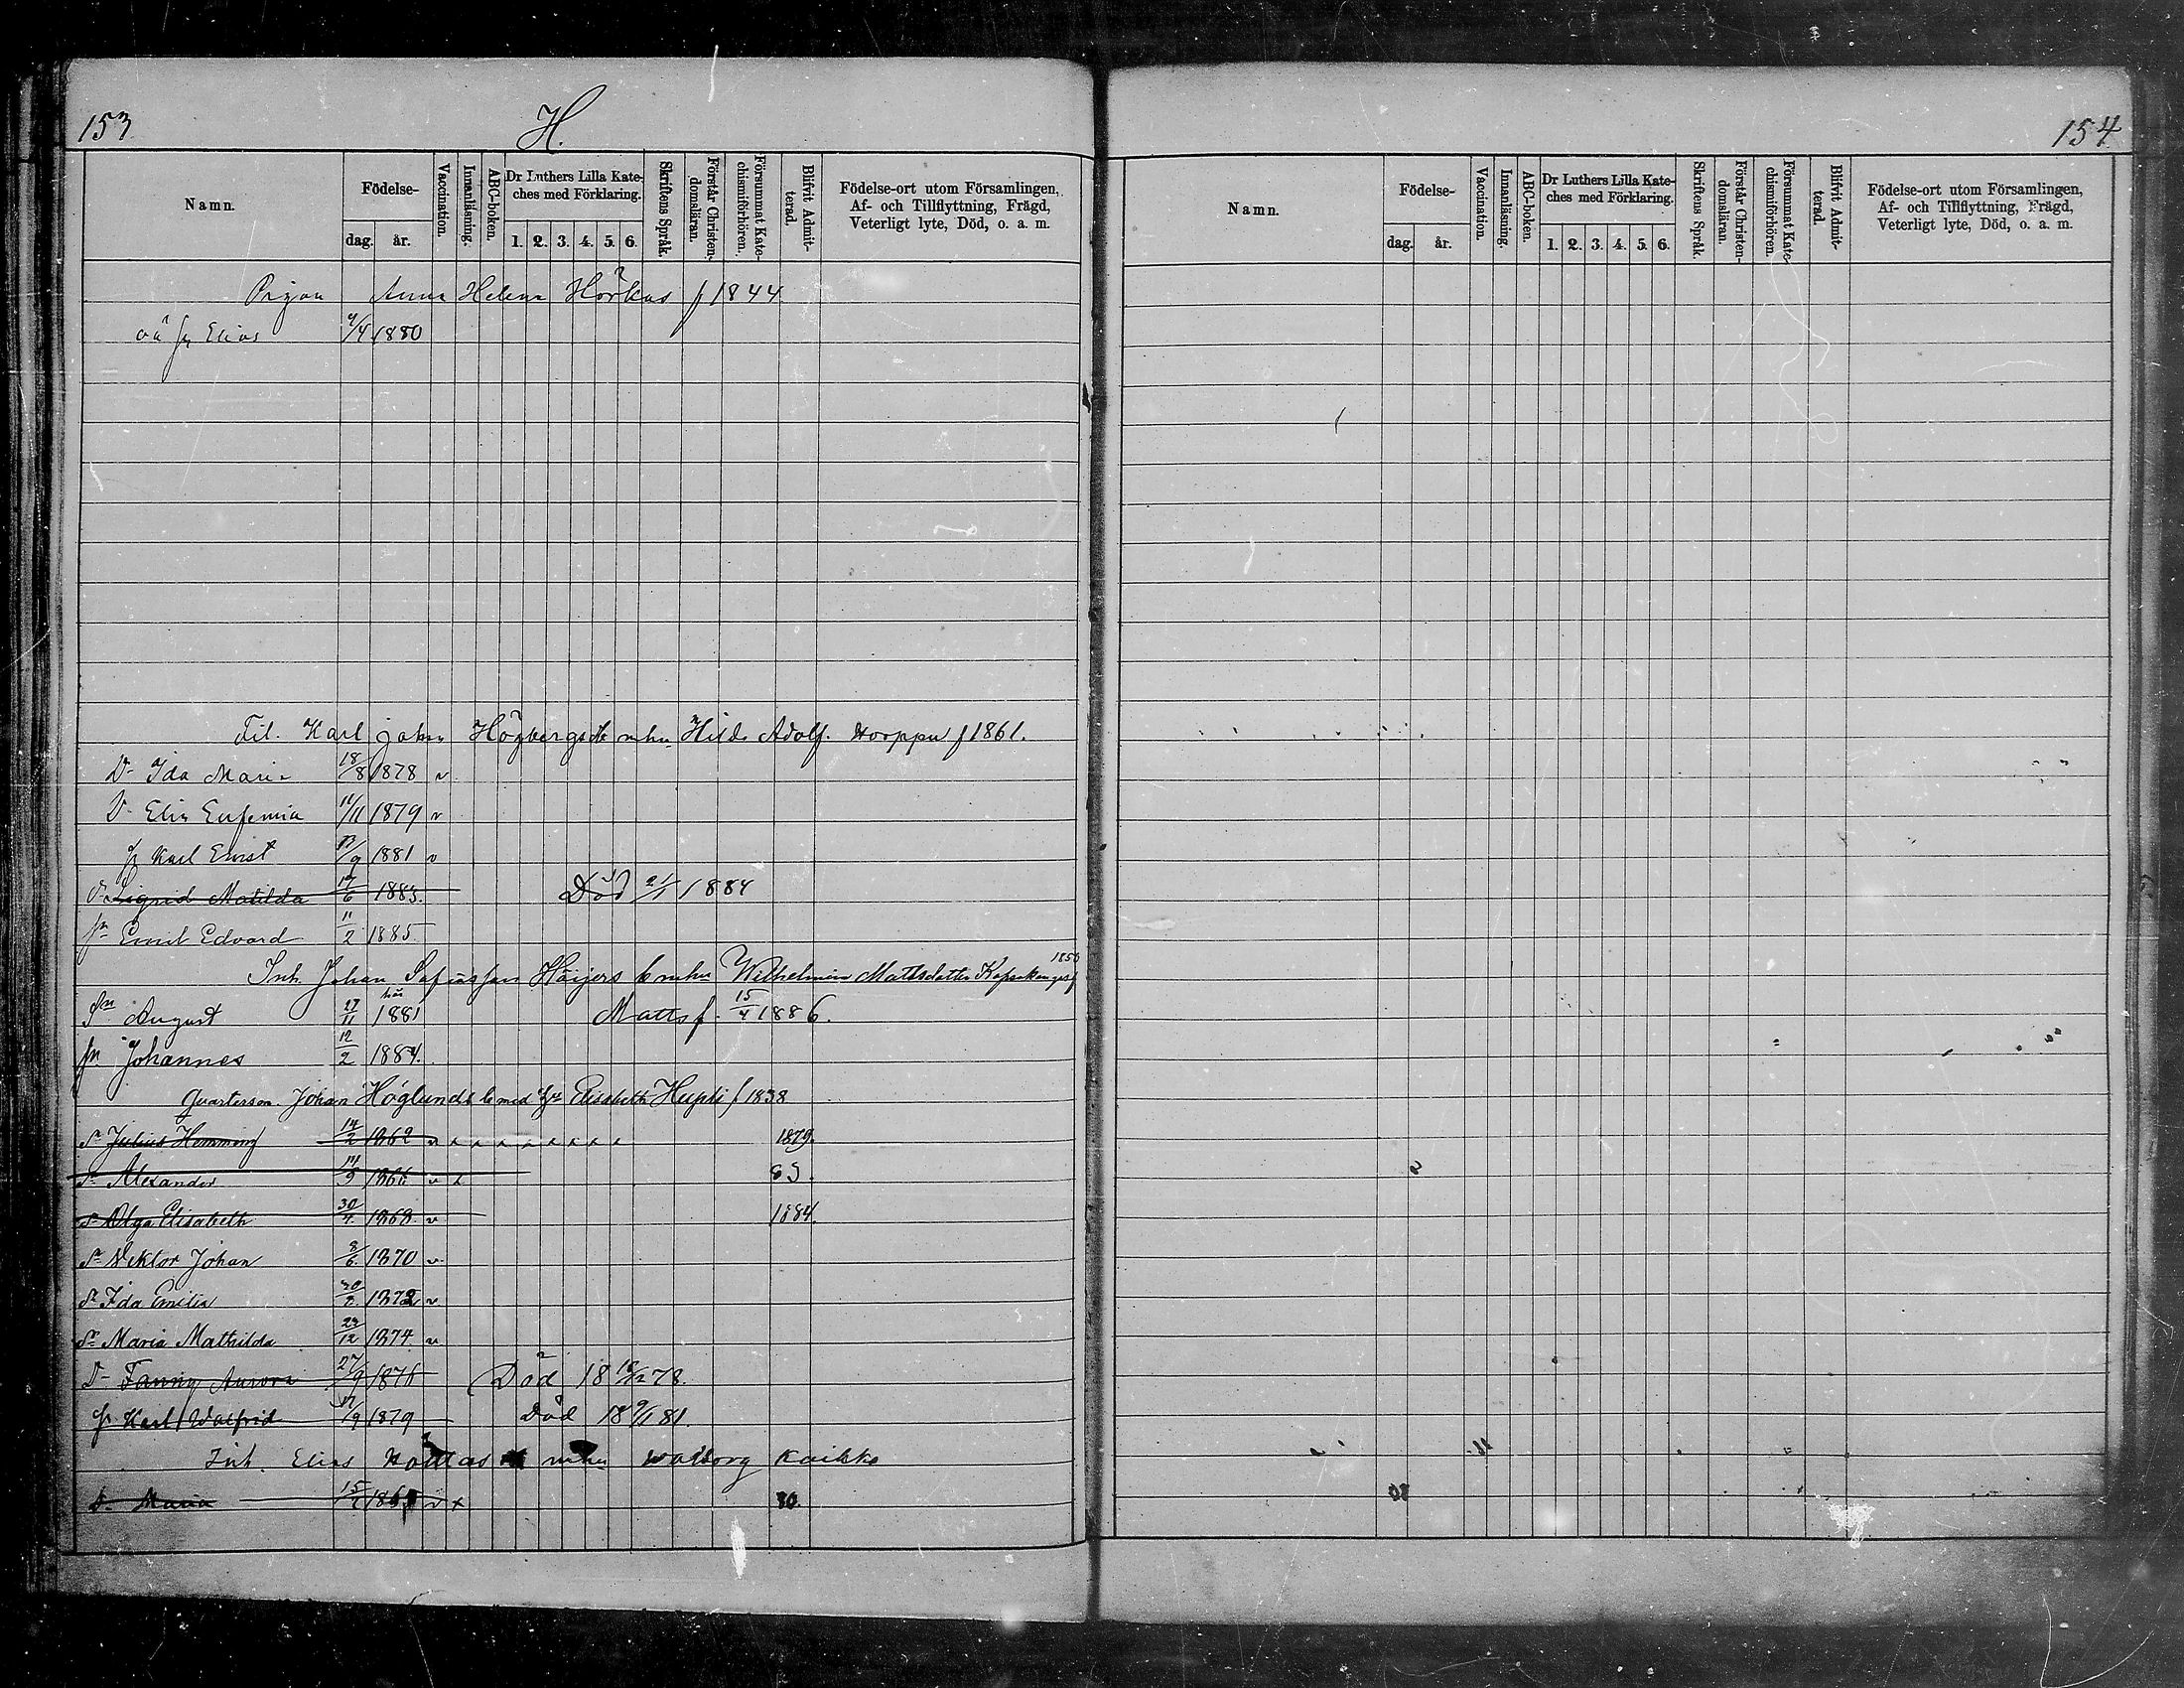 153
H.
Namn.
Födelse-
dag. år.
Vaccination.
Innanläsning.
ABC-boken.
Dr Luthers Lilla Kate-
ches med Förklaring.
1. 2. 3. 4. 5. 6.
Skriftens Språk.
Förstår Christen-
domsläran.
Försummat Kate-
chismiförhören.
Blifvit Admit-
terad.
Födelse-ort utom Församlingen,
Af- och Tillflyttning, Frägd,
Veterligt lyte, Död, o. a. m.
Pigan Anna Helena Hörkas f 1844
oä Elias 9/4 1880
Til. Karl Johan Högbergs mhu Hilda Adolf. f 1861.
D- Ida Maria 18/8 1878 v
D- Elin Eufemia 11/11 1879 v
Karl Ernst /9 1881 v
Sigrid Matilda 17/6 1883. Död 21/1 1884
Emil Edvard 11/2 1885
Inh. Johan Höijers b mhu Wilhelmina Mattsdotter 1850
Sn August 27/11 1881 Matts f. 15/4 1886.
Johannes 12/2 1884.
Johan Höglunds b med Elisabeth Hupli f 1838
Julius Hemming 14/2 1862 v 1879.
Alexander 14/9 1866 v x 83.
Olga Elisabeth 30/4 1868 v 1884.
Viktor Johan 8/6 1870 v
Ida Emilia 30/8 1872 v
Maria Mathilda 29/12 1874 v
D- Fanny Aurora 27/9 1876 Död 18 18/12 78.
Karl Walfrid 17/9 1879 Död 18 9/1 81.
Inh. Elias mhu Walborg Kaikko
D. Maria 15/ v x 80.
154
Namn.
Födelse-
dag. år.
Vaccination.
Innanläsning.
ABC-boken.
Dr Luthers Lilla Kate-
ches med Förklaring.
1. 2. 3. 4. 5. 6.
Skriftens Språk.
Förstår Christen-
domsläran.
Försummat Kate-
chismiförhören.
Blifvit Admit-
terad.
Födelse-ort utom Församlingen,
Af- och Tillflyttning, Frägd,
Veterligt lyte, Död, o. a. m.